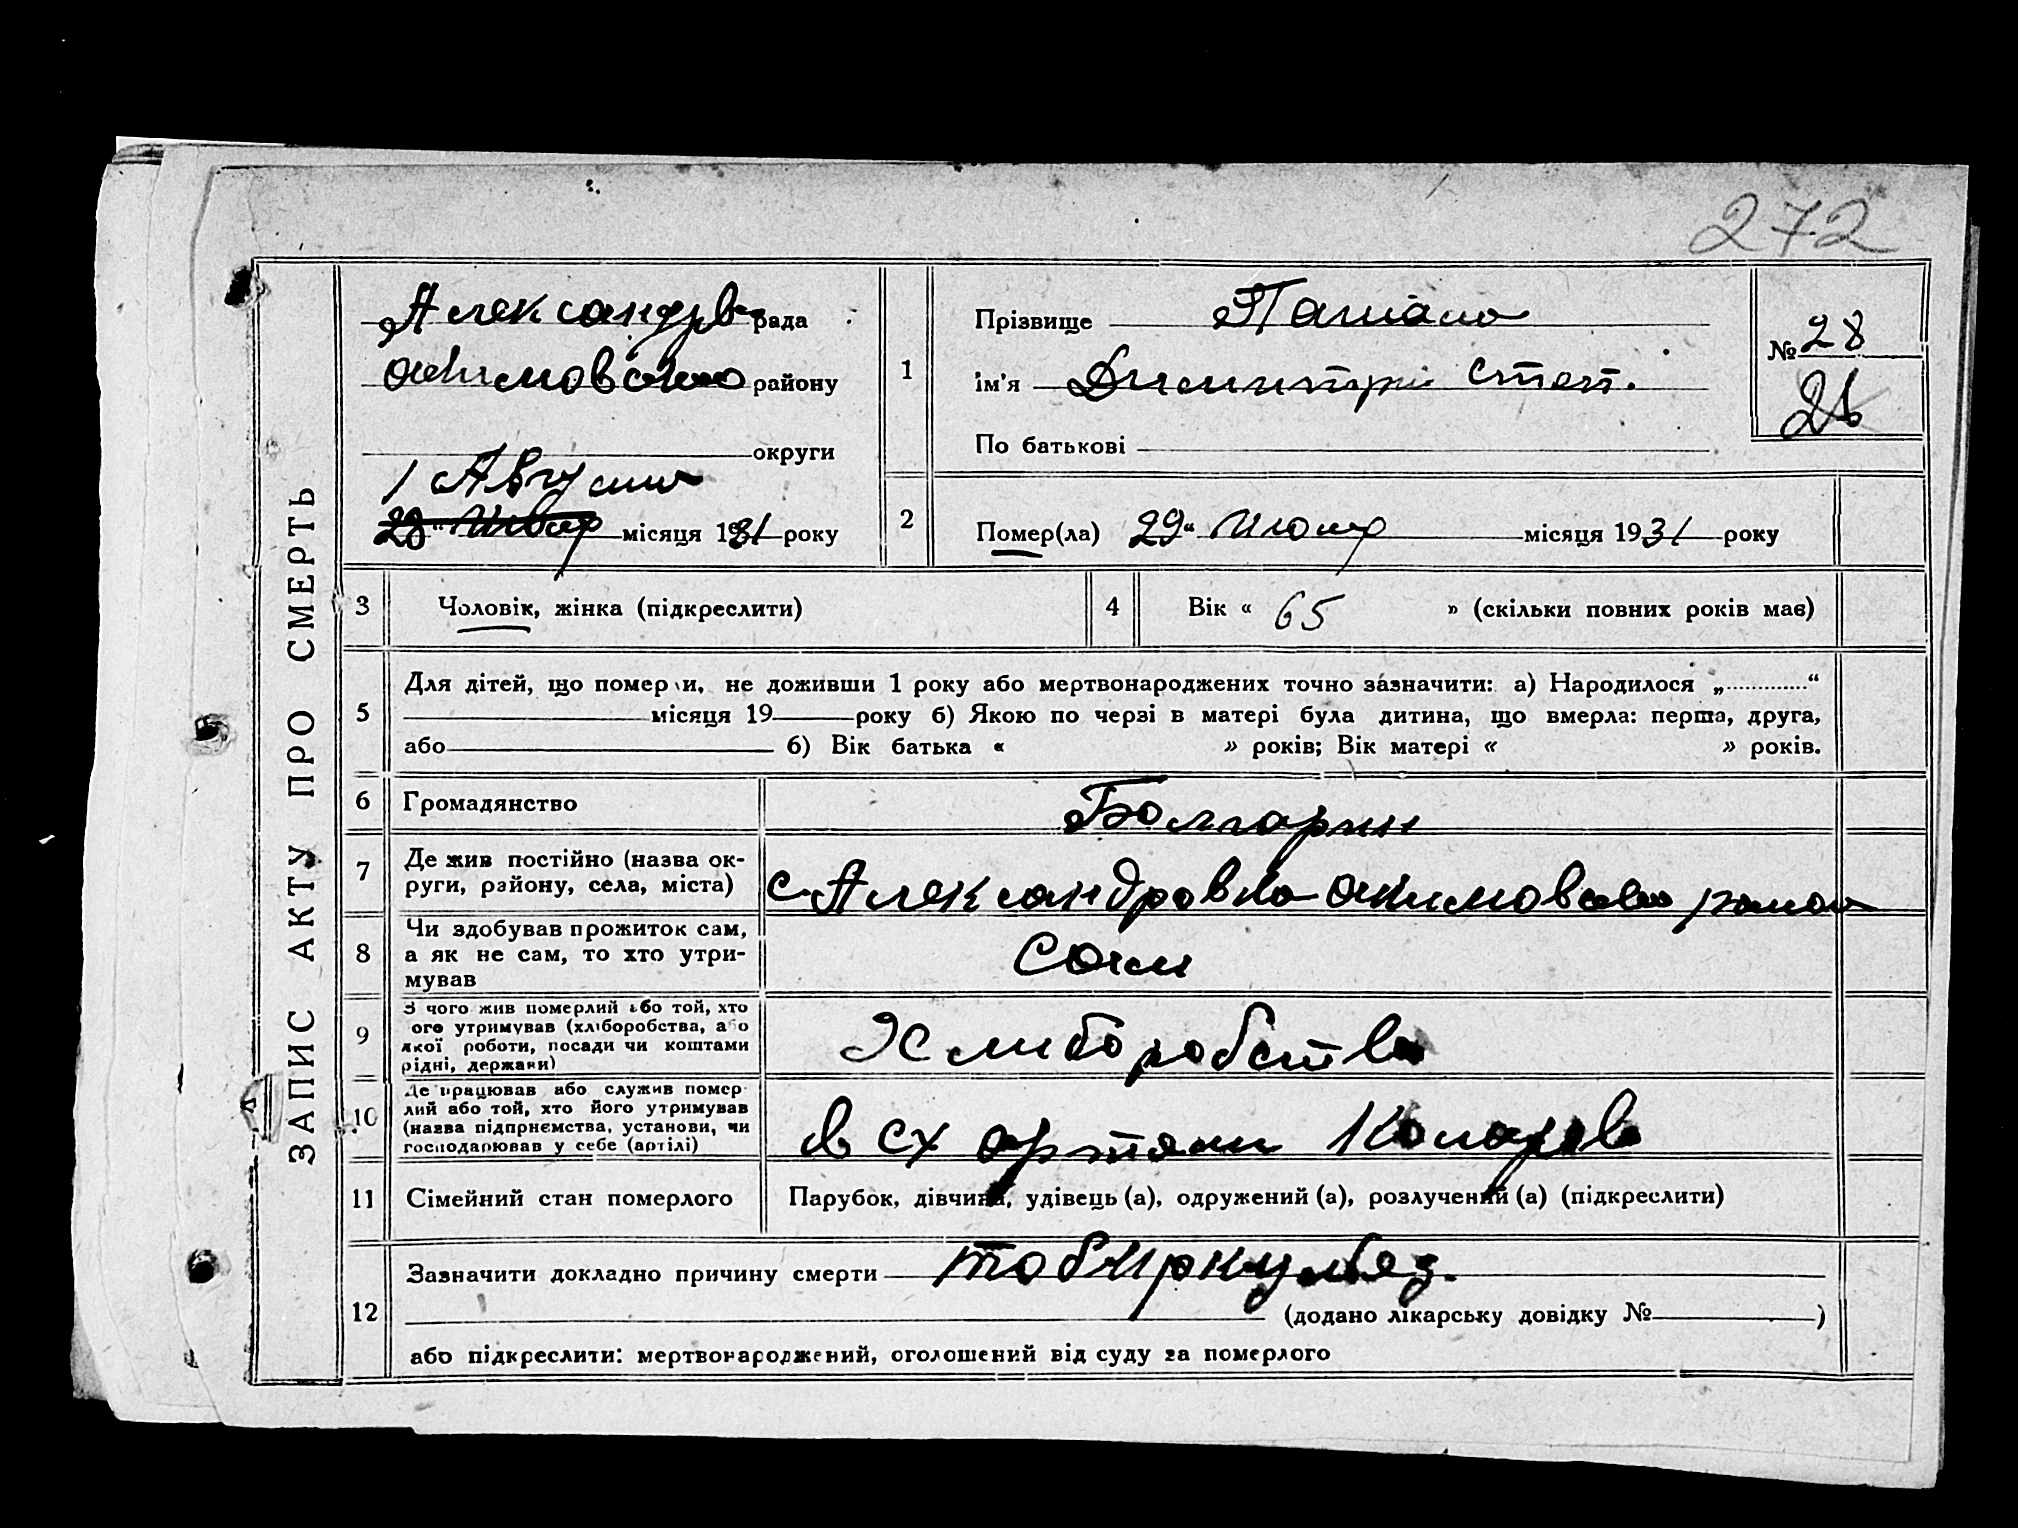 272
ЗАПИС АКТУ ПРО СМЕРТЬ
Александрв рада
округи
1 Август
місяця 1931 року
1
Прізвище
ім'я Димитрий Степ.
По батькові
№ 28
2
Помер(ла) 29 " Июля місяця 1931 року
3 Чоловік, жінка (підкреслити)
4 Вік « 65 » (скільки повних років має)
5
Для дітей, що померли, не доживши 1 року або мертвонароджених точно зазначити: а) Народилося „ “
місяця 19 року б) Якою по черзі в матері була дитина, що вмерла: перша, друга,
або б) Вік батька « » років; Вік матері « » років.
6 Громадянство
Болгарин
7
Де жив постійно (назва ок-
руги, району, села, міста)
с. Александровка Акимовского
8
Чи здобував прожиток сам,
а як не сам, то хто утри-
мував
Сам
9
З чого жив померлий або той, хто
ого утримував (хліборобства, або
якої роботи, посади чи коштами
рідні, держави)
Хлиборобства
10
Де працював або служив помер
лий або той, хто його утримував
(назва підприємства, установи, чи
господарював у себе (артілі)
в сх артели Коларов
11 Сімейний стан померлого
Парубок, дівчина, удівець (а), одружений (а), розлучений (а) (підкреслити)
12
Зазначити докладно причину смерти
(додано лікарську довідку № )
або підкреслити: мертвонароджений, оголошений від суду за померлого